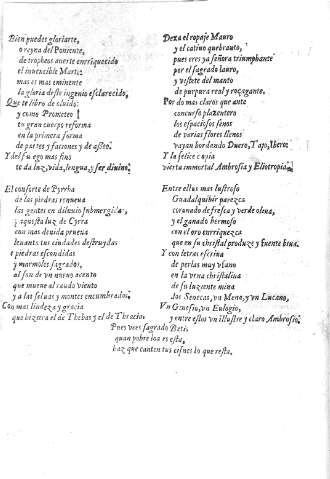 Bien puedes gloriarte,
o reyna del Poniente,
de tropheos auerte enriquecido
el inuencible Marte:
mas es mas eminente
la gloria deste ingenio esclarecido.
Que te libro de oluido:
y como Prometeo
tu gran cuerpo reforma
en la primera forma
de partes y facciones y de asseo.
Y del fuego mas fino
te da luz, vida, lengua, y ser diuino.
El consorte de Pyrrha
de las piedras renueua
las gentes en diluuio sumergidas,
y aquesta luz de Cyrra
con mas deuida prueua
leuanta tus ciudades destruydas
e piedras escondidas
y marmoles sagrados,
al son de un nueuo acento
que mueue al raudo viento
y a las seluas y montes encumbrados.
Con mas lindeza y gracia
que hiziera el de Thebas y el de Thracia.
Dexa el ropaje Mauro
y el catiuo quebranto,
pues eres ya señora triumphante
por el sagrado lauro,
y vistete del manto
de purpura real y roçagante.
Por do mas claros que ante
concurso plazentero
los espaciosos senos
de varias flores llenos
vayan bordando Duero, Tajo, Ibero:
Y la felice copia
vierta immortal Ambrosia y Eliotropia.
Entre ellos mas lustroso
Guadalquibir parezca
coronado de fresca y verde oliua,
y el ganado hermoso
con el oro enriquezca
que en su christal produze y fuente biua.
Y con letras escriua
de perlas muy vfano
en la vena christalina
de su luziente mina
los Senecas, un Mena, y un Lucano,
Vn Genesio, vn Eulogio,
y entre estos vn illustre y claro Ambrosio.
Pues vees sagrado Betis
quan pobre loa es esta,
haz que canten tus cisnes lo que resta.